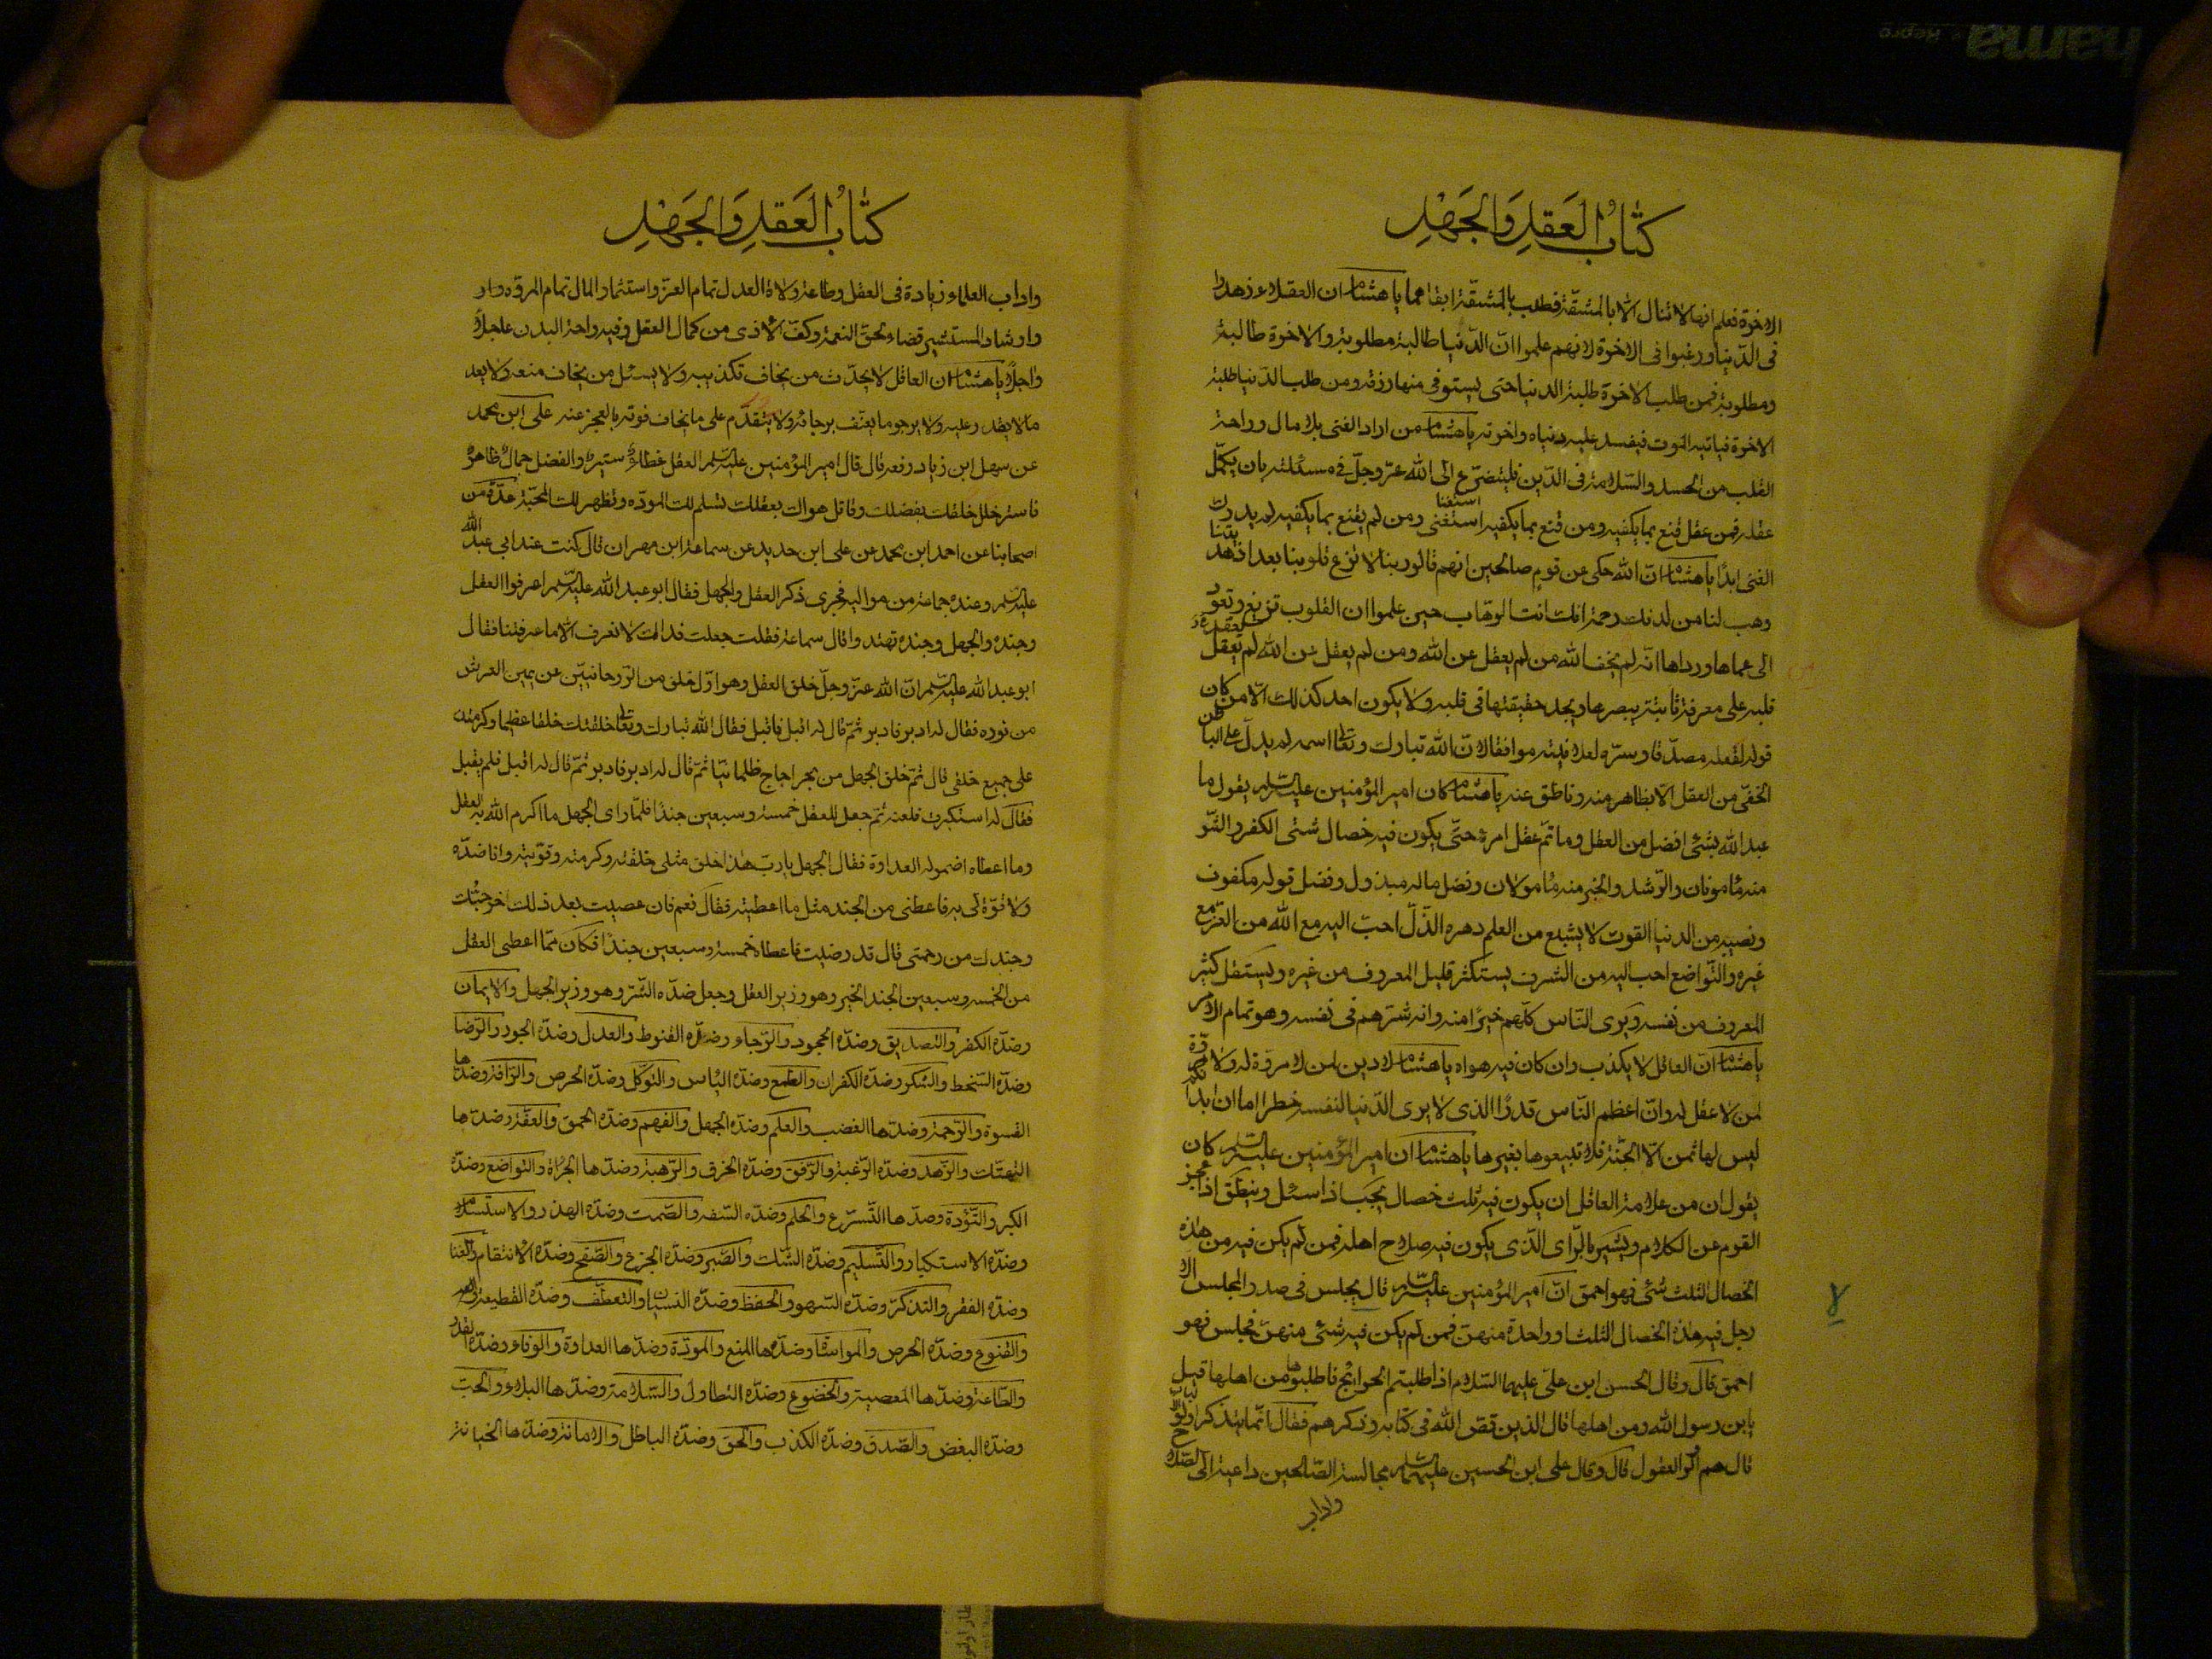 كتاب العقل والجهل
الاخرة فعلم انها لا تنال الا بالمشقة فطلب بالمشقة ابقاهما يا هشام ان العقلاء زهدوا
فى الدنيا ورغبوا فى الاخرة لانهم علموا ان الدنيا طالبة مطلوبة والاخرة طالبة
ومطلوبة فمن طلب الاخرة طلبته الدنيا حتى يستوفى منها رزقه ومن طلب الدنيا طلبته
الاخرة فياتيه الموت فيفسد عليه دنياه واخرته يا هشام من اراد الغنى بلا مال وراحة
القلب من الحسد والسلامة فى الدين فليتضرع الى الله عز وجل فى مسئلته بان يكمل
عقله فمن عقل قنع بما يكفيه ومن قنع بما يكفيه استغنى ومن لم يقنع بما يكفيه لم يدرك
الغنى ابدًا يا هشام ان الله حكى عن قوم صالحين انهم قالوا ربنا لا تزغ قلوبنا بعد اذ هديتنا
وهب لنا من لدنك رحمة انك انت الوهاب حين علموا ان القلوب تزيغ وتعود
الى عماها ورداها انه لم يخف الله من لم يعقل عن الله ومن لم يعقل عن الله لم يعقد
قلبه على معرفة ثابتة يبصرها ويجد حقيقتها فى قلبه ولا يكون احد كذلك الا من كان
قوله لفعله مصدقا وسره لعلانيته موافقا لان الله تبارك وتعالى اسمه لم يدل على الباطن
الخفى من العقل الا بظاهر منه وناطق عنه يا هشام كان امير المؤمنين عليه السلم يقول ما
عبد الله بشئ افضل من العقل وما تم عقل امرء حتى يكون فيه خصال شتى الكفر والشر
منه مامونان والرشد والخير منه مامولان وفضل ماله مبذول وفضل قوله مكفوف
ونصيبه من الدنيا القوت لا يشبع من العلم دهره الذل احب اليه مع الله من العز مع
غيره والتواضع احب اليه من الشرف يستكثر قليل المعروف من غيره ويستقل كثير
المعروف من نفسه ويرى الناس كلهم خيرًا منه وانه شرهم فى نفسه وهو تمام الامر
يا هشام ان العاقل لا يكذب وان كان فيه هواه يا هشام لا دين لمن لا مروة له ولا مروة
لمن لا عقل له وان اعظم الناس قدرًا الذى لا يرى الدنيا لنفسه خطرا اما ان ابدانكم
ليس لها ثمن الا الجنة فلا تبيعوها بغيرها يا هشام ان امير المؤمنين عليه السلم كان
يقول ان من علامة العاقل ان يكون فيه ثلث خصال يجيب اذا سئل وينطق اذا عجز
القوم عن الكلام ويشير بالراى الذى يكون فيه صلاح اهله فمن لم يكن فيه من هذه
الخصال الثلث شئ فهو احمق ان امير المؤمنين عليه السلم قال لا يجلس فى صدر المجلس الا
رجل فيه هذه الخصال الثلث او واحدة منهن فمن لم يكن فيه شئ منهن فجلس فهو
احمق قال وقال الحسن ابن على عليهما السلام اذا طلبتم الحوائج فاطلبوها من اهلها قيل
يابن رسول الله ومن اهلها قال الذين قص الله فى كتابه وذكرهم فقال انما يتذكر اولوا الالباب
قال هم اولو العقول قال وقال على ابن الحسين عليهما السلم مجالسة الصالحين داعية الى الصلاح
واداب
كتاب العقل والجهل
واداب العلماء زيادة فى العقل وطاعة ولاة العدل تمام العز واستثمار المال تمام المروة
وارشاد المستشير قضاء لحق النعمة وكف الاذى من كمال العقل وفيه راحة البدن عاجلًا
واجلًا يا هشام ان العاقل لا يحدث من يخاف تكذيبه ولا يسئل من يخاف منعه ولا يعد
ما لا يقدر عليه ولا يرجو ما يعنف برجائه ولا يتقدم على ما يخاف فوته بالعجز عنه على ابن محمد
عن سهل ابن زياد رفعه قال قال امير المؤمنين عليه السلم العقل غطاء ستير والفضل جمال ظاهر
فاستر خلل خلقك بفضلك وقاتل هواك بعقلك تسلم لك المودة وتظهر لك المحبة عدة من
اصحابنا عن احمد ابن محمد عن على ابن حديد عن سماعة ابن مهران قال كنت عند ابى عبد الله
عليه السلم وعنده جماعة من مواليه فجرى ذكر العقل والجهل فقال ابو عبد الله عليه السلم اعرفوا العقل
وجنده والجهل وجنده تهتدوا قال سماعة فقلت جعلت فداك لا نعرف الا ما عرفتنا فقال
ابو عبد الله عليه السلم ان الله عز وجل خلق العقل وهو اول خلق من الروحانيين عن يمين العرش
من نوره فقال له ادبر فادبر ثم قال له اقبل فاقبل فقال الله تبارك وتعالى خلقتك خلقا عظيما وكرمتك
على جميع خلقى قال ثم خلق الجهل من بحر اجاج ظلمانيا ثم قال له ادبر فادبر ثم قال له اقبل فلم يقبل
فقال له استكبرت فلعنه ثم جعل للعقل خمسة وسبعين جندًا فلما راى الجهل ما اكرم الله به العقل
وما اعطاه اضمر له العداوة فقال الجهل يا رب هذا خلق مثلى خلقته وكرمته وقويته وانا ضده
ولا قوة لى به فاعطنى من الجند مثل ما اعطيته فقال نعم فان عصيت بعد ذلك اخرجتك
وجندك من رحمتى قال قد رضيت فاعطاه خمسة وسبعين جندًا فكان مما اعطى العقل
من الخمسة وسبعين الجند الخير وهو وزير العقل وجعل ضده الشر وهو وزير الجهل والايمان
وضده الكفر والتصديق وضده الجحود والرجاء وضده القنوط والعدل وضده الجور والرضا
وضده السخط والشكر وضده الكفران والطمع وضده الياس والتوكل وضده الحرص والرافة وضدها
القسوة والرحمة وضدها الغضب والعلم وضده الجهل والفهم وضده الحمق والعفة وضدها
التهتك والزهد وضده الرغبة والرفق وضده الخرق والرهبة وضدها الجراة والتواضع وضده
الكبر والتؤدة وضدها التسرع والحلم وضده السفه والصمت وضده الهذر والاستسلام
وضده الاستكبار والتسليم وضده الشك والصبر وضده الجزع والصفح وضده الانتقام والغنا
وضده الفقر والتذكر وضده السهو والحفظ وضده النسيان والتعطف وضده القطيعة
والقنوع وضده الحرص والمواساة وضدها المنع والمودة وضدها العداوة والوفاء وضده الغدر
والطاعة وضدها المعصية والخضوع وضده التطاول والسلامة وضدها البلاء والحب
وضده البغض والصدق وضده الكذب والحق وضده الباطل والامانة وضدها الخيانة
hama
Repro